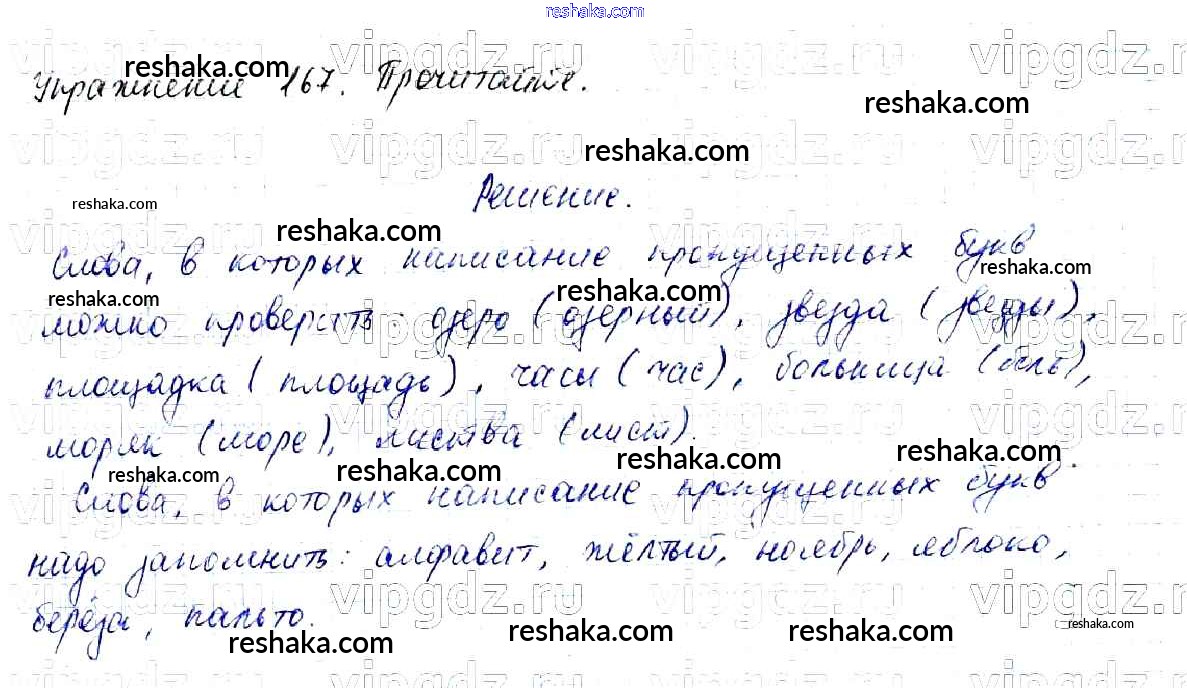 reshaka.com
Упражнение 167. Прочитайте.
Решение.
Слова, в которых написание пропущенных букв
можно проверить: озеро (озёрный), звезда (звёзды),
площадка (площадь), часы (час), больница (боль),
моряк (море), листва (лист).
Слова, в которых написание пропущенных букв
надо запомнить: алфавит, жёлтый, ноябрь, яблоко,
берёза, пальто.